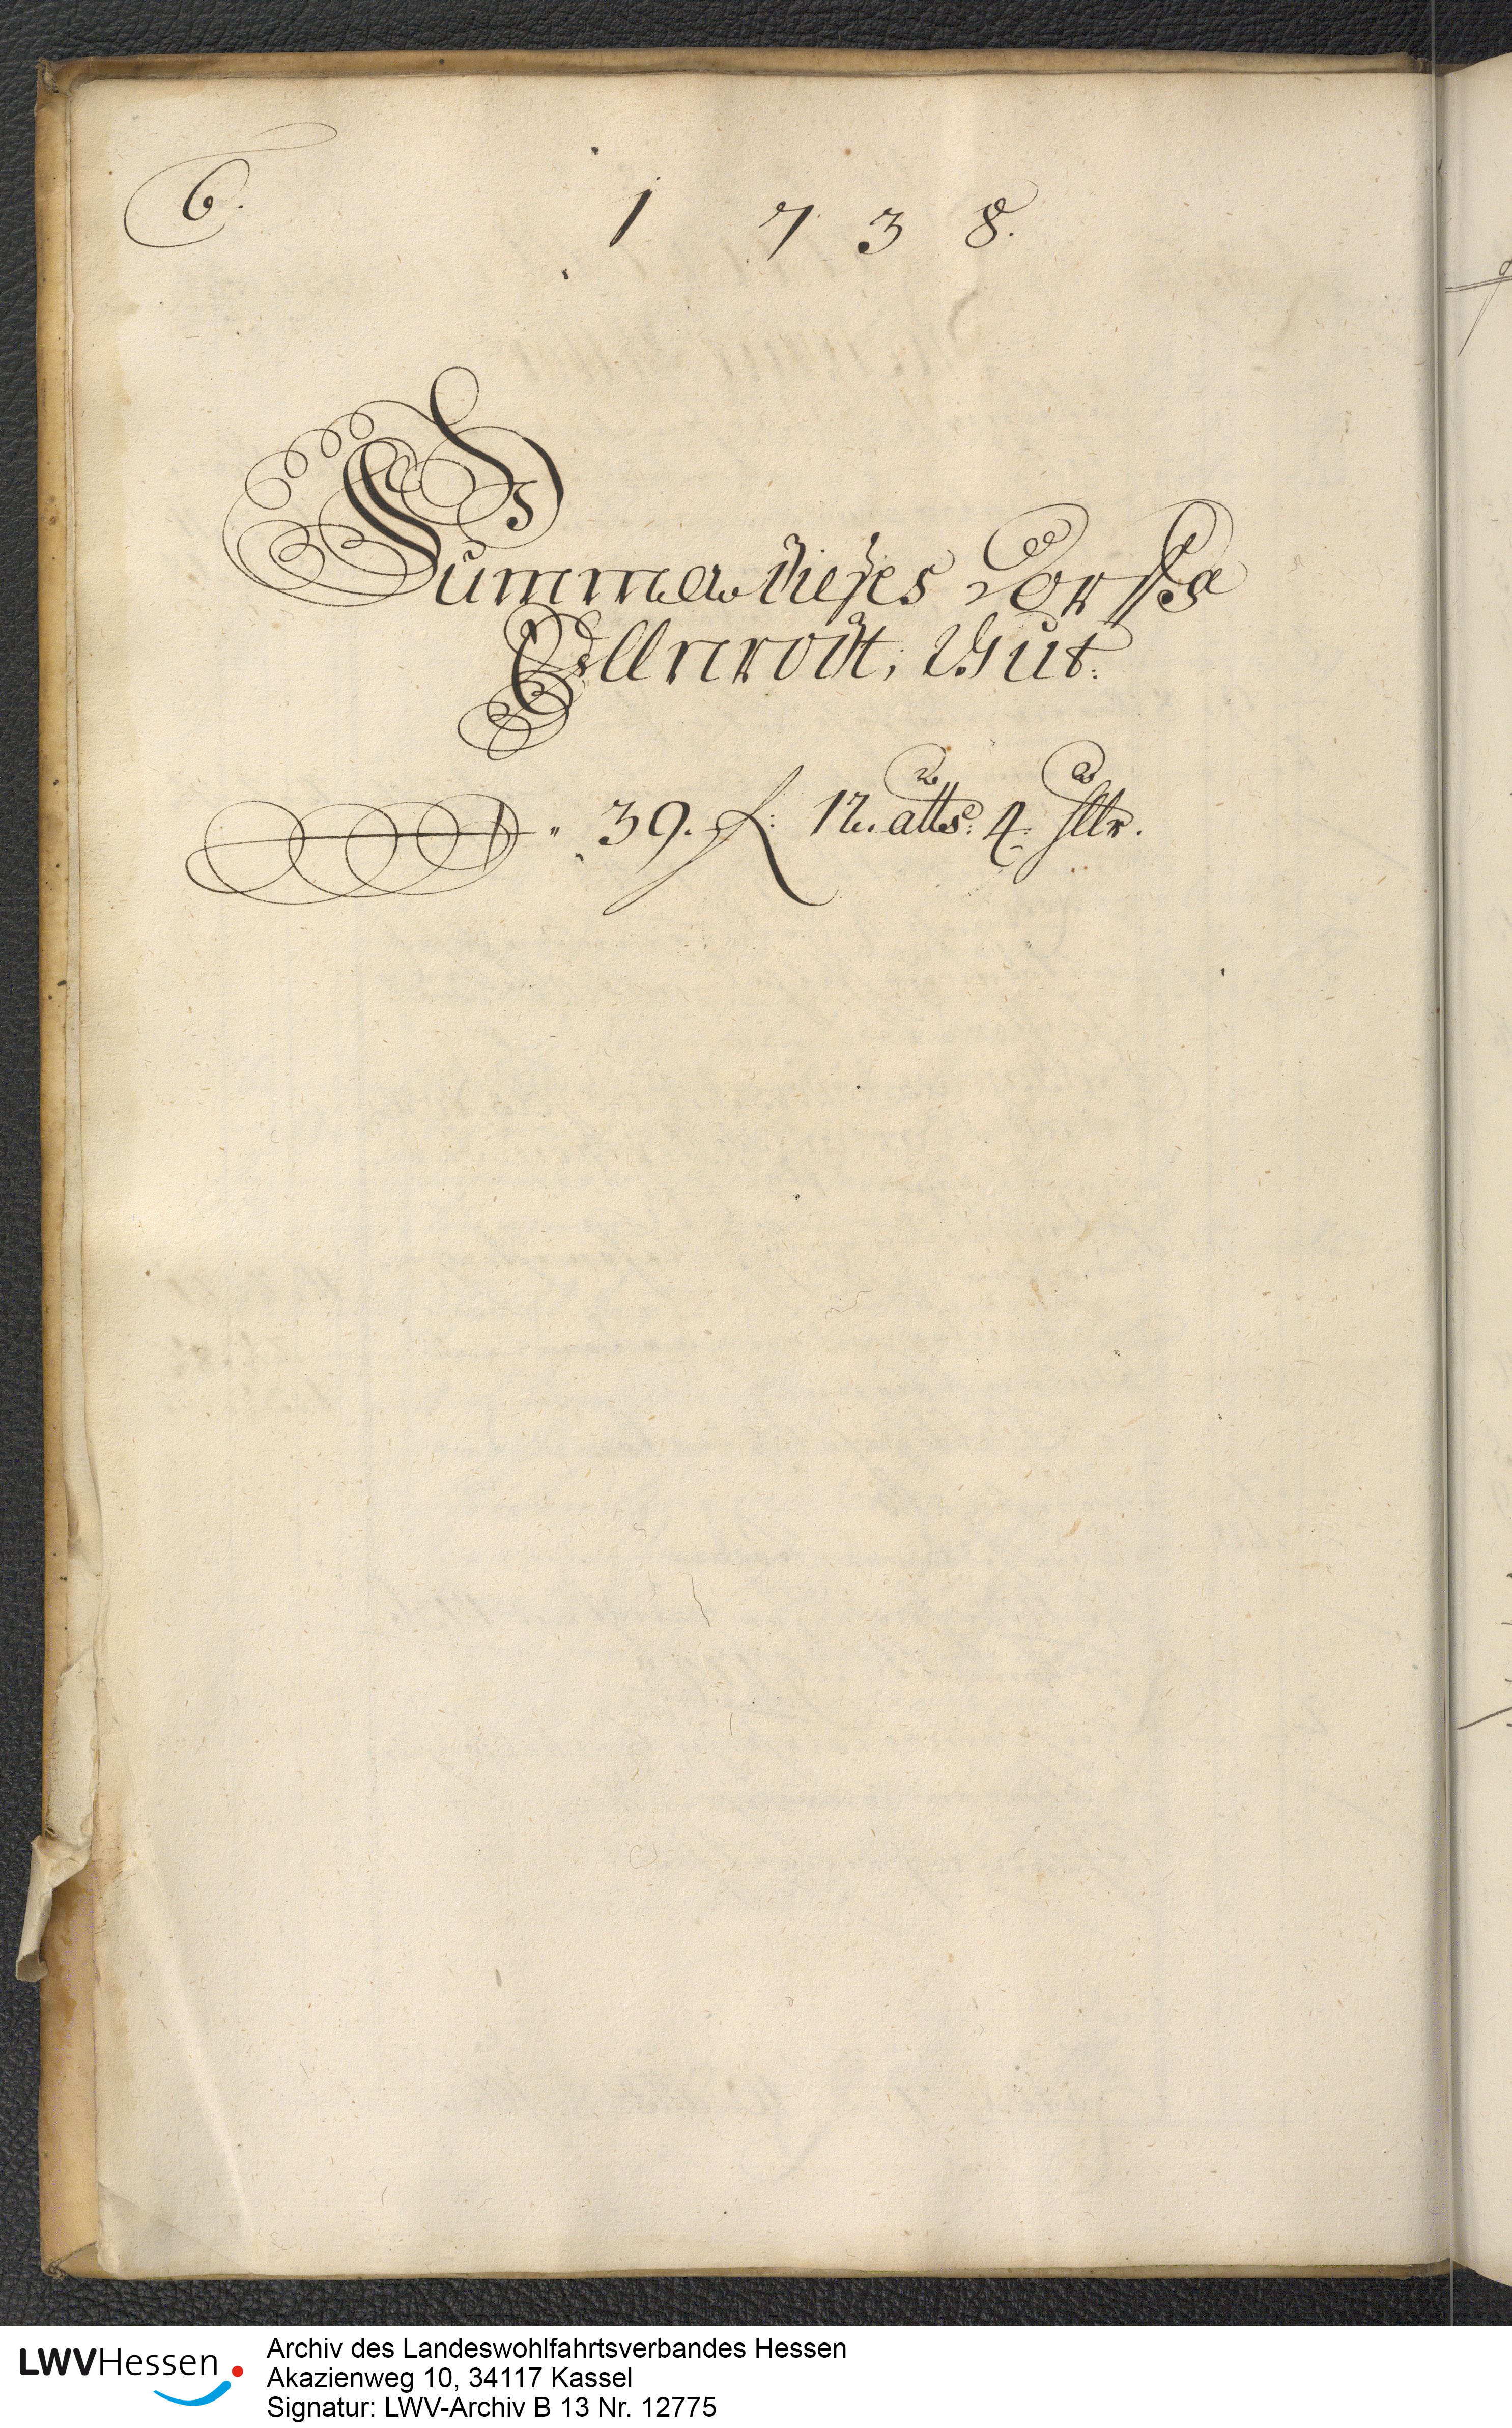 6.
1 7 3 8.
Summa dieses Dorffs
Ellnrodt; thut:
39. f: 12. atts: 4. hlr.
LWVHessen
Archiv des Landeswohlfahrtsverbandes Hessen
Akazienweg 10, 34117 Kassel
Signatur: LWV-Archiv B 13 Nr. 12775